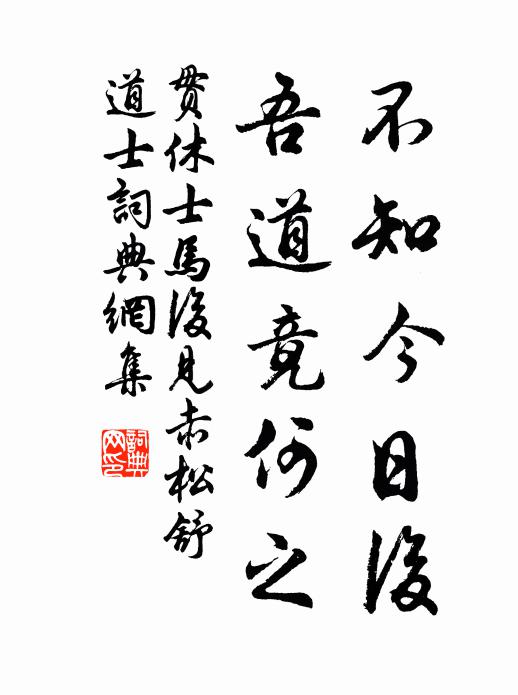 不知今日後
吾道竟何之
貫休士馬後見赤松舒
道士詞典網集
詞典
网印